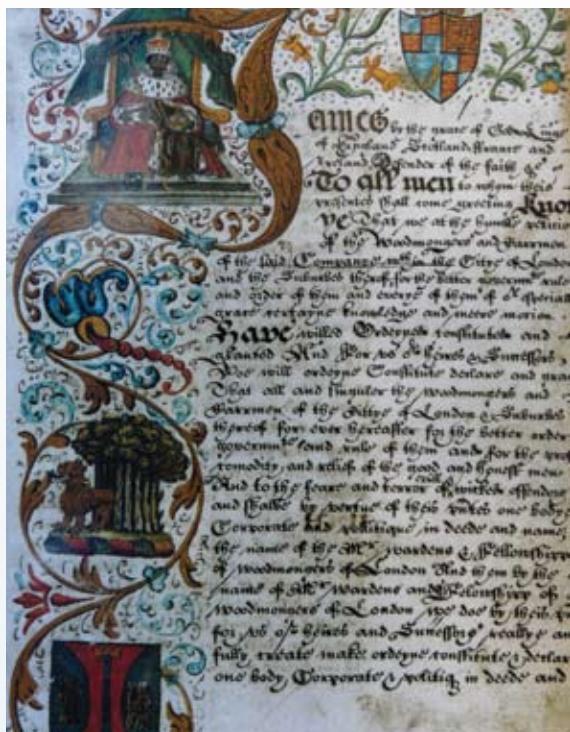 ames by the grace of God kinge
of England Scotland ffrance and
Ireland Defender of the faith &c
To all men to whom theis
presents shall come greeting Know
ye That we at the humble peticion
of the Woodmongers and Carrmen
of the said Companye within the Cittye of London
and the Suburbes thereof for the better governmt rule
and order of them and everye of them of or speciall
grace certayne knowledge and meere motion
Have willed Ordeyned constituted and
graunted And for us or heires & Successors
Wee will ordeyne Constitute declare and graunt
That all and singuler the woodmongers and
Carrmen of the Cittye of London & Suburbes
thereof for ever hereafter for the better order
governmt and rule of them and for the
comodity and relief of the good and honest men
And to the feare and terror of wicked offenders
and shalbe by vertue of theis one bodye
Corporate and politique in deede and name
the name of the Mr wardens & Fellowshipp
of woodmongers of London And them by the
name of Mr wardens and Fellowshipp of
woodmongers of London we doe by theis
for us or heires and Successors reallye and
fully create make ordeyne constitute & declare
one body Corporate & politiq in deede and